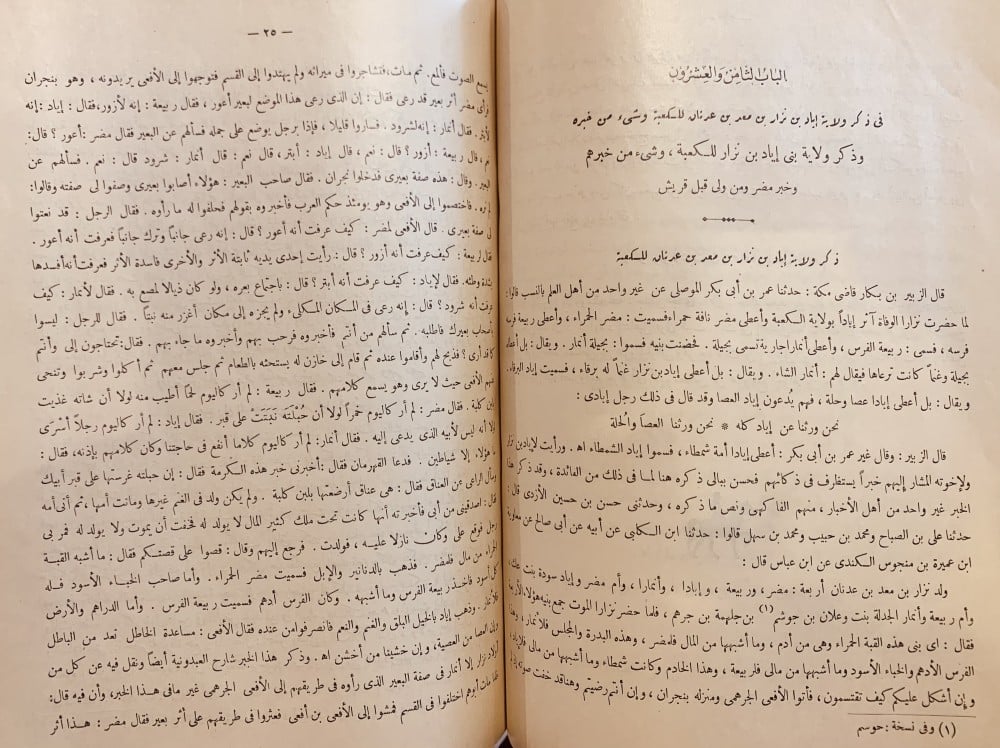 الباب الثامن والعشرون
فى ذكر ولاية إياد بن نزار بن معد بن عدنان للكعبة وشىء من خبره
وذكر ولاية بنى إياد بن نزار للكعبة ، وشىء من خبرهم
وخبر مضر ومن ولى قبل قريش
ذكر ولاية إياد بن نزار بن معد بن عدنان للكعبة
قال الزبير بن بكار قاضى مكة : حدثنا عمر بن أبى بكر الموصلى عن غير واحد من أهل العلم بالنسب قالوا :
لما حضرت نزارا الوفاة آثر إياداً بولاية الكعبة وأعطى مضر ناقة حمراء فسميت : مضر الحمراء ، وأعطى ربيعة فرسه
فرسه ، فسمى : ربيعة الفرس ، وأعطى أنمارا جارية تسمى بجيلة . فحضنت بنيه فسموا : بجيلة أنمار . ويقال : بل أعطاه
بجيلة وغنماً كانت ترعاها فيقال لهم : أنمار الشاء . ويقال : بل أعطى إياد بن نزار غنماً له برقاء ، فسميت إياد البرقاء .
ويقال : بل أعطى إيادا عصا وحلة ، فهم يدعون إياد العصا وقد قال فى ذلك رجل إيادى :
نحن ورثنا عن إياد كله * نحن ورثنا العصا والحلة
قال الزبير : وقال غير عمر بن أبى بكر : أعطى إيادا أمة شمطاء ، فسموا إياد الشمطاء اه . ورأيت لإياد بن نزار
ولإخوته المشار إليهم خبراً يستظرف فى ذكائهم فحسن ببالى ذكره هنا لما فى ذلك من الفائدة ، وقد ذكر هذا
الخبر غير واحد من أهل الأخبار ، منهم الفاكهى ونص ما ذكره ، وحدثنى حسن بن حسين الأزدى قال :
حدثنا على بن الصباح ومحمد بن حبيب ومحمد بن سهل قالوا : حدثنا ابن الكلبى عن أبيه عن أبى صالح عن معاوية
ابن عميرة بن منجوس الكندى عن ابن عباس قال :
ولد نزار بن معد بن عدنان أربعة : مضر ، وربيعة ، وإيادا ، وأنمارا ، وأم مضر وإياد سودة بنت عك ،
وأم ربيعة وأنمار الجدلة بنت وعلان بن جوشم (١) بن جلهمة بن جرهم ، فلما حضر نزارا الموت جمع بنيه هؤلاء الأربعة
فقال : اى بنى هذه القبة الحمراء وهى من أدم ، وما أشبهها من المال فلمضر ، وهذه البدرة والمجلس فلأنمار ، وهذا
الفرس الأدهم والخباء الأسود وما أشبهها من مالى فلربيعة ، وهذا الخادم وكانت شمطاء ، وما أشبهها من مالى فلإياد ،
وإن أشكل عليكم كيف تقتسمون ، فأتوا الأفعى الجرهمى ومنزله بنجران ، وإن أنتم رضيتم وهناقد خفت صوته
(١) وفى نسخة : حوسم
— ٢٥ —
يسمع الصوت فألمع . ثم مات ، فتشاجروا فى ميراثه ولم يهتدوا إلى القسم فتوجهوا إلى الأفعى يريدونه ، وهو بنجران
رأى مضر أثر بعير قد رعى فقال : إن الذى رعى هذا الموضع لبعير أعور ، فقال ربيعة : إنه لأزور ، فقال : إياد : إنه
لأبتر . فقال أنمار : إنه لشرود . فساروا قليلا ، فإذا برجل يوضع على جمله فسألهم عن البعير فقال مضر : أعور ؟ قال :
نعم ، قال ربيعة : أزور ؟ قال : نعم ، قال إياد : أبتر ، قال نعم : قال أنمار : شرود قال : نعم . فسألهم عن
البعير . وقال : هذه صفة بعيرى فدخلوا نجران . فقال صاحب البعير : هؤلاء أصابوا بعيرى وصفوا لى صفته وقالوا :
لم نره . فاختصموا إلى الأفعى وهو يومئذ حكم العرب فأخبروه بقولهم فحلفوا له ما رأوه . فقال الرجل : قد نعتوا
لى صفة بعيرى . قال الأفعى لمضر : كيف عرفت أنه أعور ؟ قال : إنه رعى جانباً وترك جانباً فعرفت أنه أعور .
قال لربيعة : كيف عرفت أنه أزور ؟ قال : رأيت إحدى يديه ثابتة الأثر والأخرى فاسدة الأثر فعرفت أنه أفسدها
بشدة وطئه . فقال لإياد : كيف عرفت أنه أبتر ؟ قال : باجتماع بعره ، ولو كان ذيالا لمصع به . فقال لأنمار : كيف
عرفت أنه شرود ؟ قال : إنه رعى فى المكان المكلىء ولم يجزه إلى مكان أغزر منه نبتاً . فقال للرجل : ليسوا
بأصحاب بعيرك فاطلبه . ثم سألهم من أنتم فأخبروه فرحب بهم وأخبروه ما جاء بهم . فقال : تحتاجون إلى وأنتم
كما قد أرى ؟ فذبح لهم وأقاموا عنده ثم قام إلى خازن له يستحثه بالطعام ثم جلس معهم ثم أكلوا وشربوا وتنحى
عنهم الأفعى حيث لا يرى وهو يسمع كلامهم . فقال ربيعة : لم أر كاليوم لحماً أطيب منه لولا أن شاته غذيت
بلبن كلبة . فقال مضر : لم أر كاليوم خمراً لولا أن حُبْلَتَه نَبَتَتْ على قبر . فقال إياد : لم أر كاليوم رجلاً أسْرَى
لولا أنه ليس لأبيه الذى يدعى إليه . فقال أنمار : لم أر كاليوم كلاما أنفع فى حاجتنا وكان كلامهم بإذنه ، فقال :
ما هؤلاء إلا شياطين . فدعا القهرمان فقال : أخبرنى خبر هذه الكرمة فقال : إن حبلته غرستها على قبر أبيك
وسأل الراعى عن العناق فقال : هى عناق أرضعتها بلبن كلبة . ولم يكن ولد فى الغنم غيرها وماتت أمها ، ثم أتى أمه
فقال : اصدقينى من أبى فأخبرته أنها كانت تحت ملك كثير المال لا يولد له فخفت أن يموت ولا يولد له فمر بى
رجل فوقع على وكان نازلا عليه ، فولدت . فرجع إليهم وقال : قصوا على قصتكم فقال : ما أشبه القبة
الحمراء من مالى فلمضر . فذهب بالدنانير والإبل فسميت مضر الحمراء . وأما صاحب الخباء الأسود فله
كل أسود فأخذ ربيعة الفرس وما أشبهه . وكان الفرس أدهم فسميت ربيعة الفرس . وأما الدراهم والأرض
فلأنمار . وذهب إياد بالخيل البلق والغنم والنعم فانصرفوا من عنده فقال الأفعى : مساعدة الخاطل تعد من الباطل
وإن العصا من العصية ، وإن خشينا من أخشن اه . وذكر هذا الخبر شارح العبدونية أيضاً ونقل فيه عن كل من
أولاد نزار إلا أنمار فى صفة البعير الذى رأوه فى طريقهم إلى الأفعى الجرهمى غير ما فى هذا الخبر ، وأن فيه قال :
فلما مات أبوهم اختلفوا فى القسم فمشوا إلى الأفعى بن أفعى فعثروا فى طريقهم على أثر بعير فقال مضر : هذا أثر